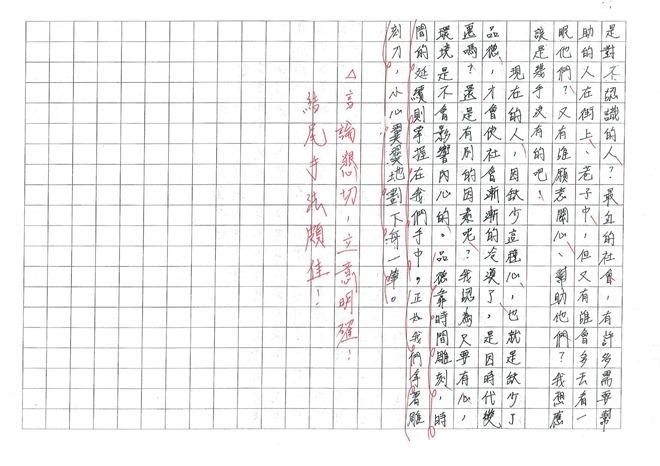 是對不認識的人？最近的社會，有許多需要幫
助的人在街上、巷子中，但又有誰會多去看一
眼他們？又有誰願意關心、幫助他們？我想應
該是幾乎沒有的吧！
現在的人，因缺少這種心，也就是缺少了
品德，才會使社會漸漸的冷漠了，是因時代變
遷嗎？還是有別的因素呢？我認為只要有心，
環境是不會影響內心的。品德靠時間雕刻，時
間的延續則掌握在我們手中。正如我們拿著雕
刻刀，小心翼翼地劃下每一筆。
△言論懇切，立意明確！
結尾手法頗佳！